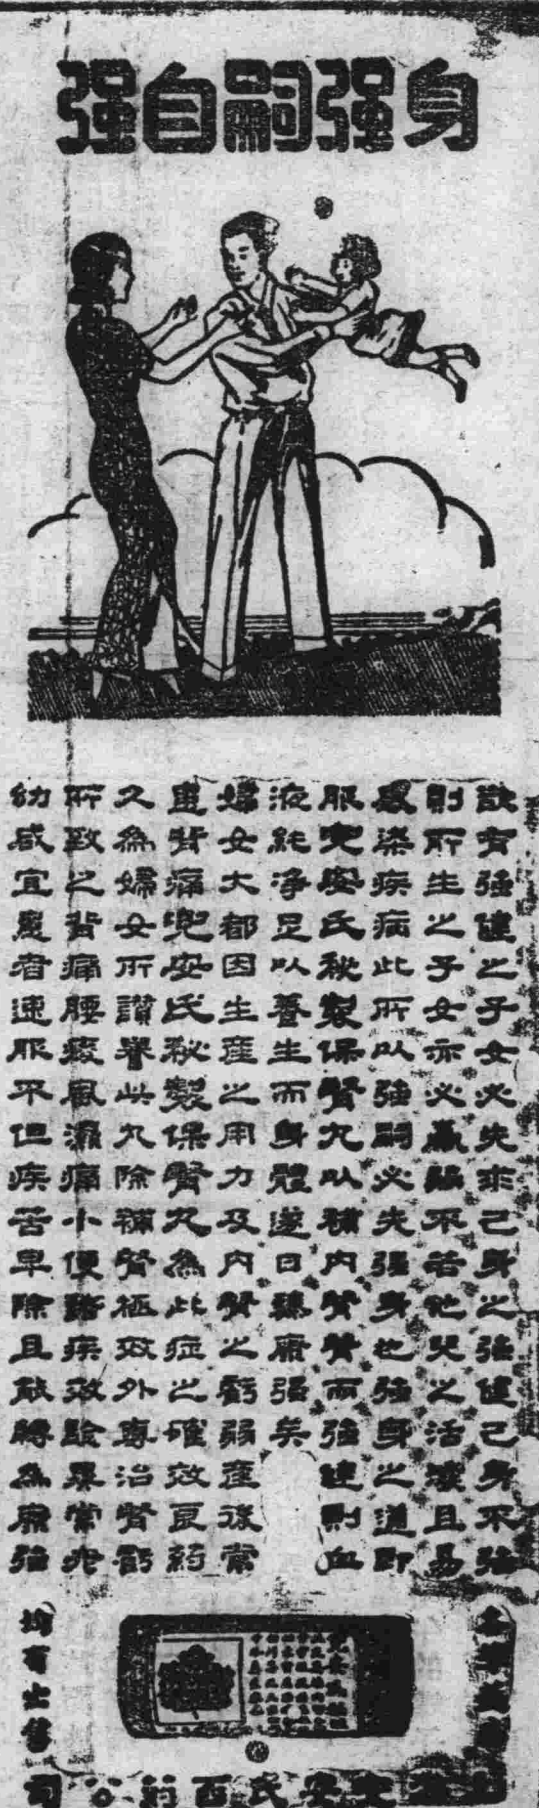 身强嗣自强
欲有强健之子女必先求己身之强健己身不强
則所生之子女亦必羸弱不若他兒之活潑且易
感染疾病此所以強嗣必先强身也強身之道即
服兜安氏秘製保腎丸以補內腎腎而強健則血
液純净足以養生而身體遂日臻康强矣
婦女大都因生產之用力及內腎之虧弱產後常
患背痛兜安氏秘製保腎丸為此症之確效良葯
久為婦女所讚譽此丸除補腎極效外專治腎虧
所致之背痛腰痠風濕痛小便諸疾效驗異常老
幼咸宜患者速服不但疾苦早除且能轉為康強
均有出售
兜安氏西葯公司